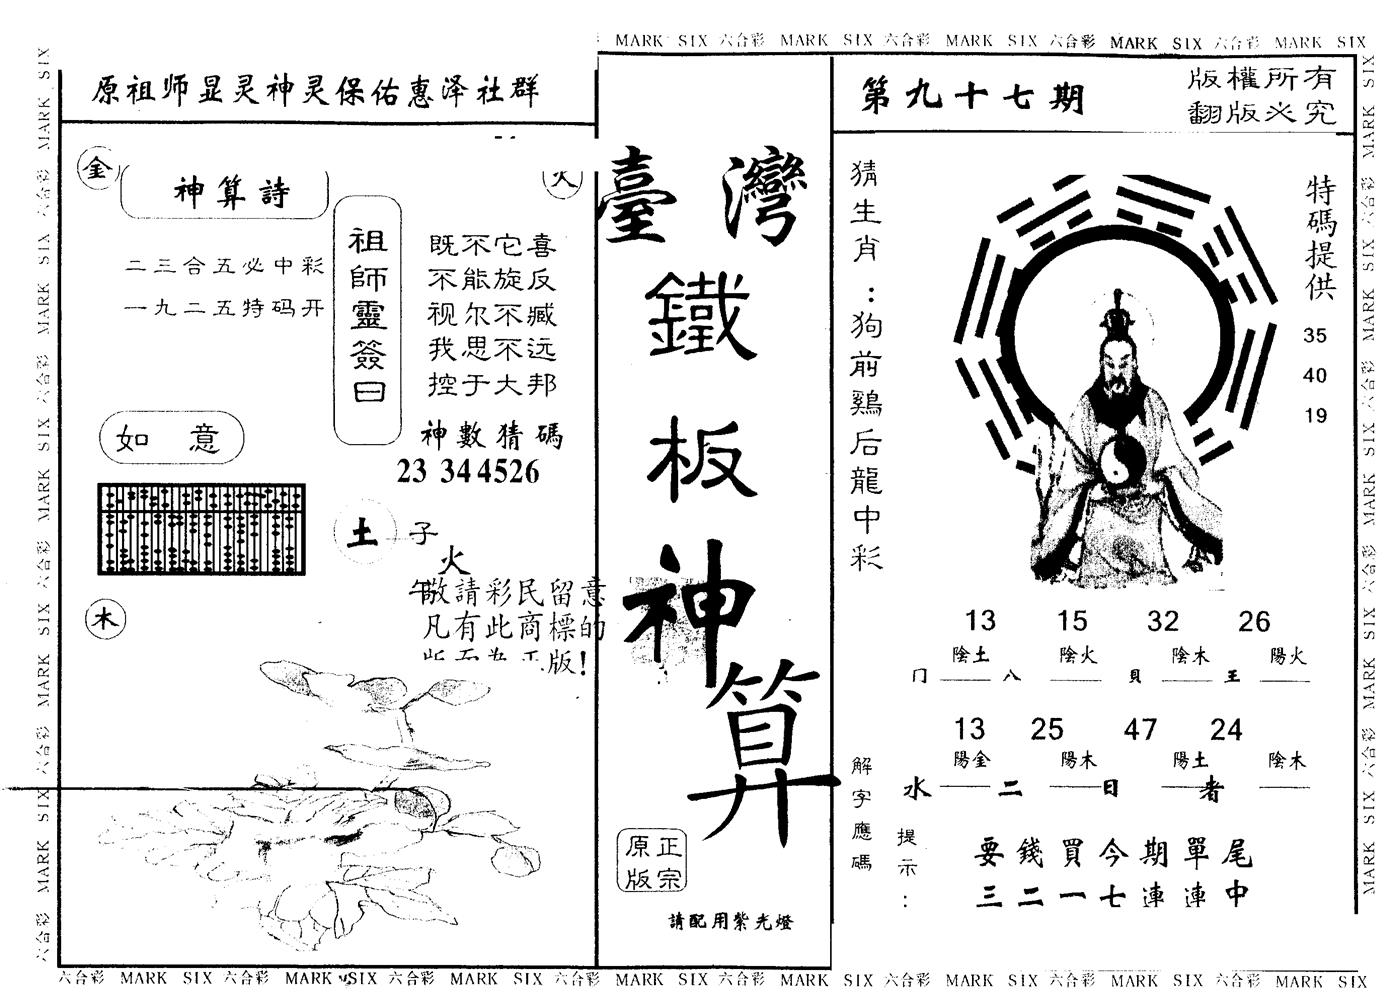 MARK SIX 六合彩 MARK SIX 六合彩 MARK SIX 六合彩 MARK SIX 六合彩 MARK SIX
原祖师显灵神灵保佑惠泽社群
金
火
神算詩
二三合五必中彩
一九二五特码开
祖師靈簽曰
既不它喜
不能旋反
视尔不臧
我思不远
控于大邦
神數猜碼
23 34 45 26
如意
土
子
火
午
木
敬請彩民留意
凡有此商標的
版!
臺灣
鐵板神算
正宗
原版
請配用紫光燈
第九十七期
版權所有
翻版必究
猜生肖:狗前鷄后龍中彩
特碼提供
35
40
19
13 15 32 26
陰土 陰火 陰木 陽火
冂 八 貝 王
13 25 47 24
陽金 陽木 陽土 陰木
水 二 日 者
解字應碼
提示:
要錢買今期單尾
三二一七連連中
六合彩 MARK SIX 六合彩 MARK SIX 六合彩 MARK SIX 六合彩 MARK SIX 六合彩 MARK SIX 六合彩 MARK SIX 六合彩 MARK SIX 六合彩 MARK SIX